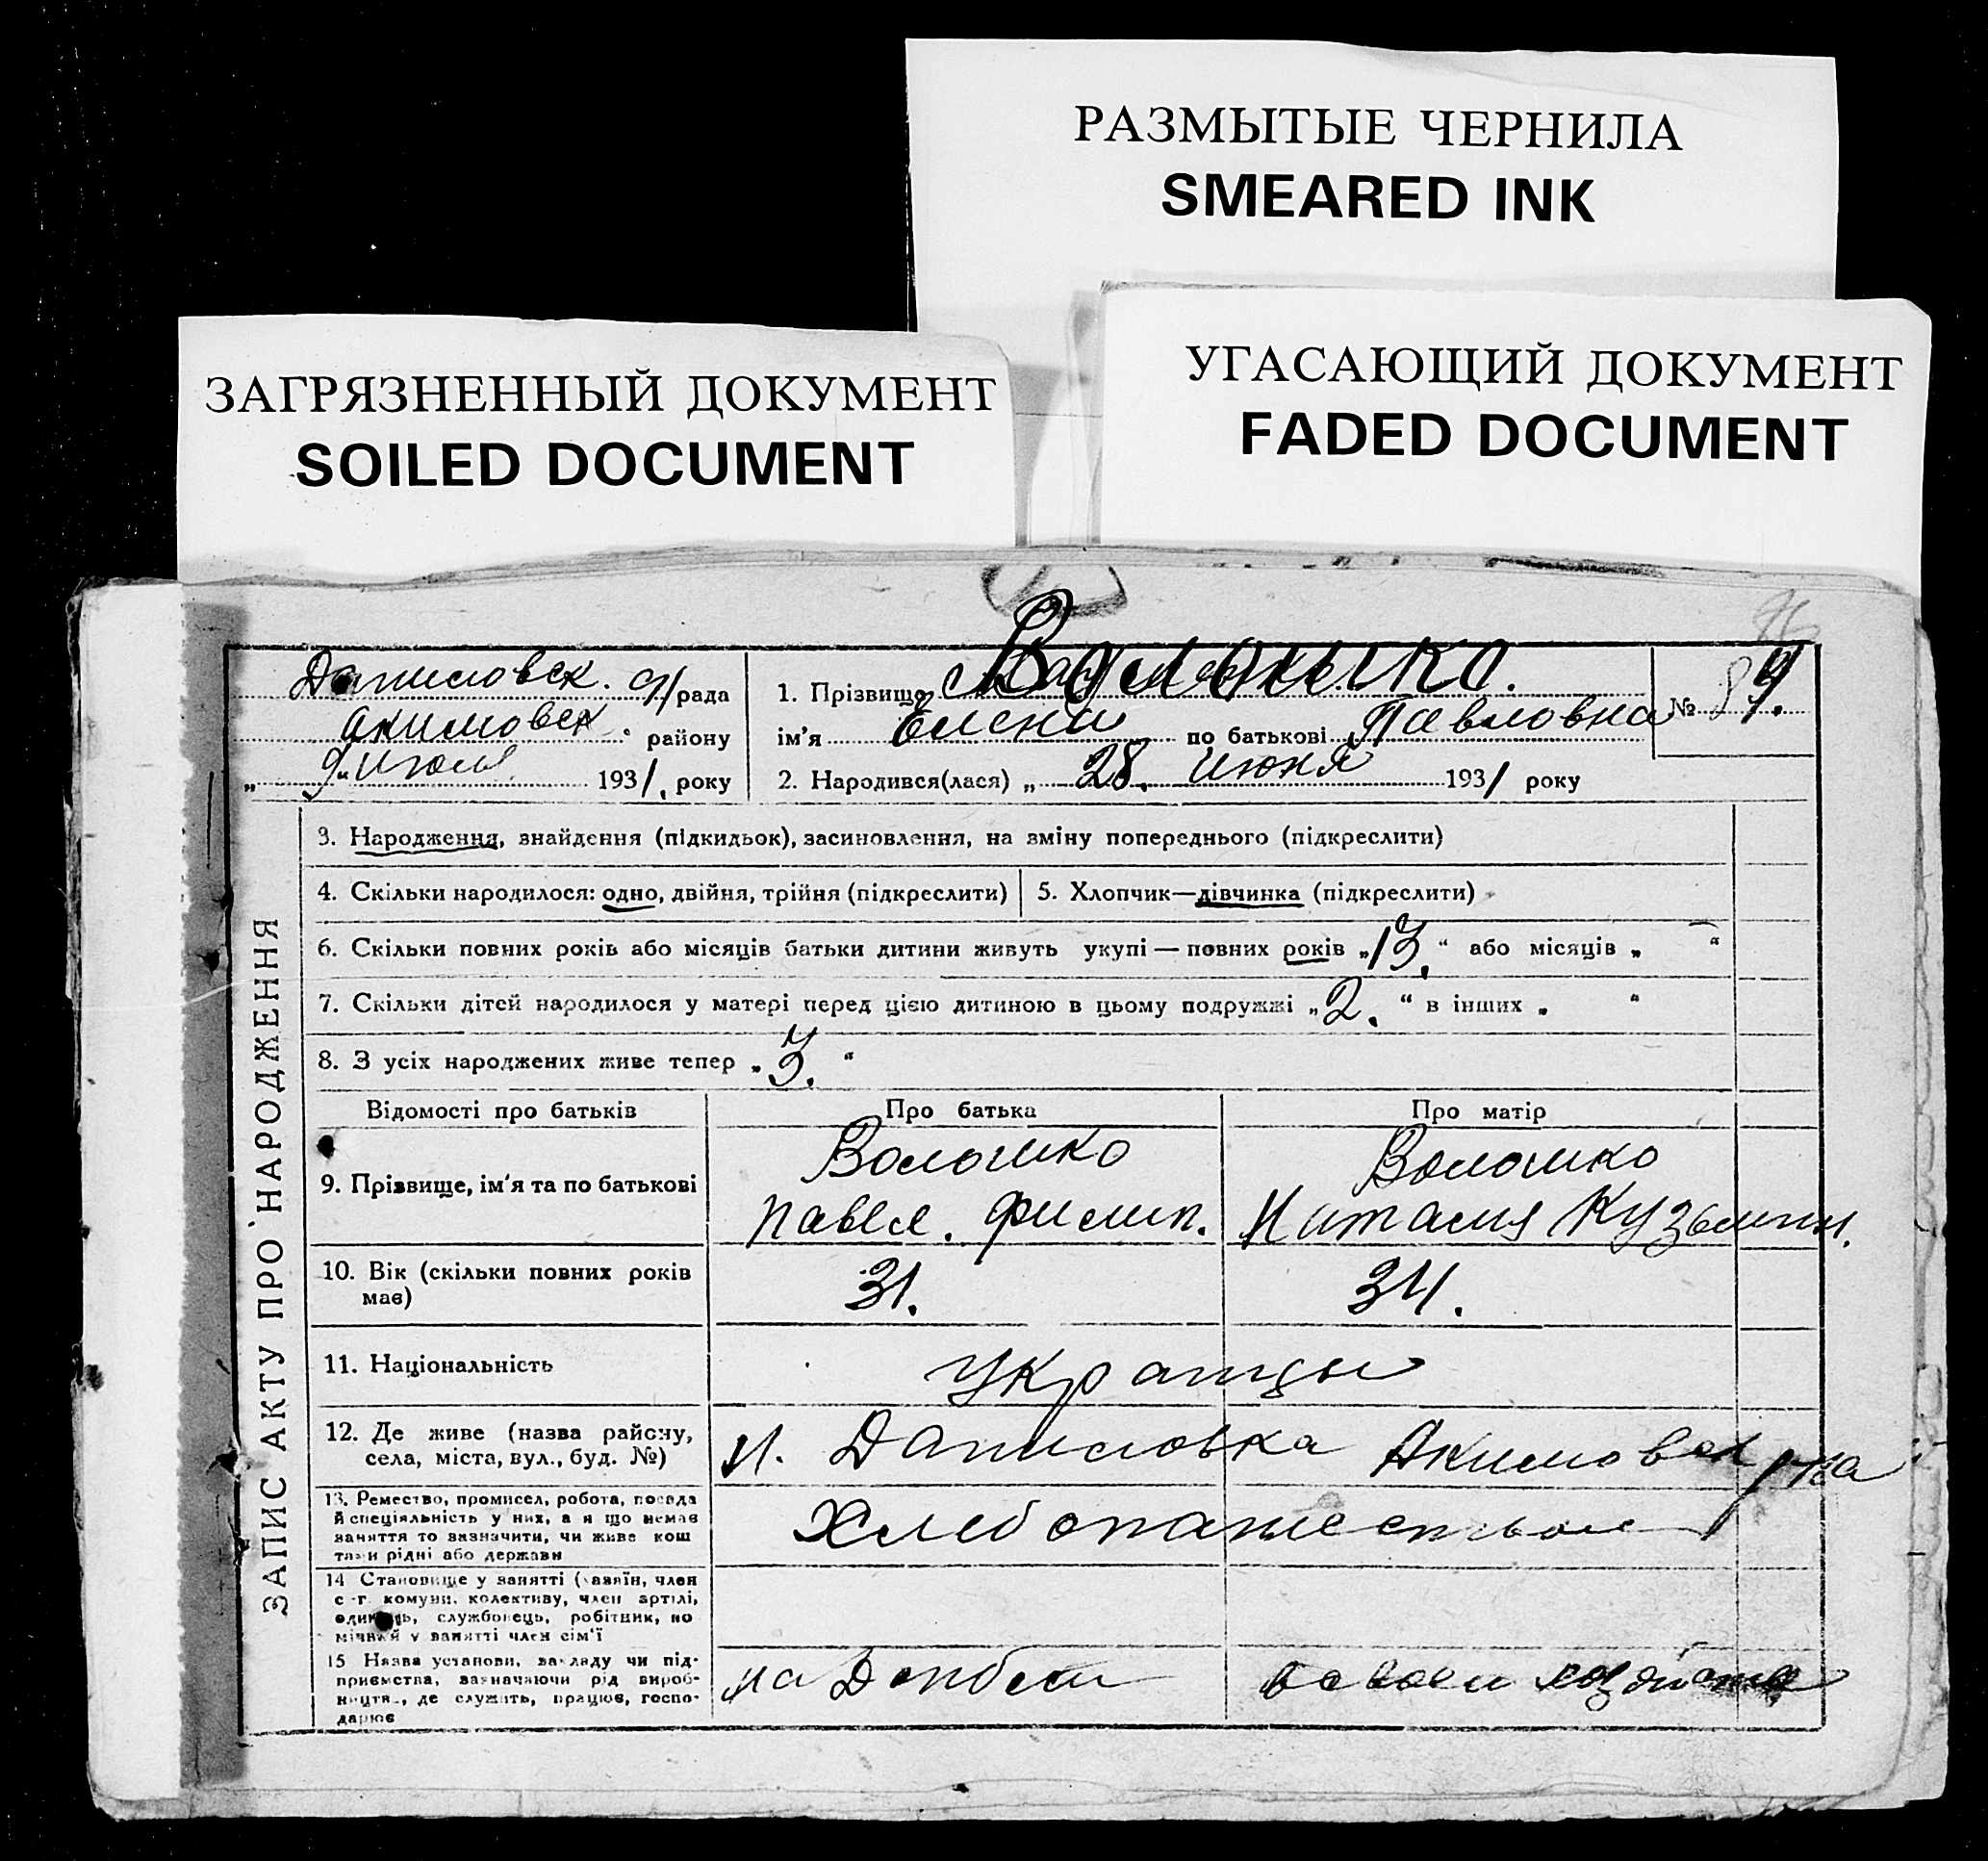 РАЗМЫТЫЕ ЧЕРНИЛА
SMEARED INK
ЗАГРЯЗНЕННЫЙ ДОКУМЕНТ
SOILED DOCUMENT
УГАСАЮЩИЙ ДОКУМЕНТ
FADED DOCUMENT
Даниловск. рада
Акимовск. району
„ 9 “ Июля 1931. року
1. Прізвище Волошко.
ім'я Елена по батькові Павловна
2. Народився(лася) „ 28. Июня 1931 року
№ 84.
ЗАПИС АКТУ ПРО НАРОДЖЕННЯ
3. Народження, знайдення (підкидьок), засиновлення, на зміну попереднього (підкреслити)
4. Скільки народилося: одно, двійня, трійня (підкреслити)
5. Хлопчик—дівчинка (підкреслити)
6. Скільки повних років або місяців батьки дитини живуть укупі — повних років „13.“ або місяців „ — “
7. Скільки дітей народилося у матері перед цією дитиною в цьому подружжі „2.“ в інших „ “
8. З усіх народжених живе тепер „3.“
Відомості про батьків Про батька Про матір
9. Прізвище, ім'я та по батькові
Волошко
Павел. Филип.
Волошко
Наталия Кузьмин.
10. Вік (скільки повних років
має)
31. 34.
11. Національність
Украинцы
12. Де живе (назва району,
села, міста, вул., буд. №)
Даниловка Акимовск р-на
13. Ремество, промисел, робота, посада
й спеціяльність у них, а я що немає
заняття то зазначити, чи живе кош
тами рідні або держави
Хлебопашеством
14 Становище у занятті (хазяїн, член
с-г комуни, колективу, член артілі,
одинець, службовець, робітник, по
мічний у занятті член сім'ї
15 Назва установи, закладу чи під-
приємства, зазначаючи рід вироб-
ництв., де служить, працює, госпо-
дарює
на Донбасе в своем хозяйстве